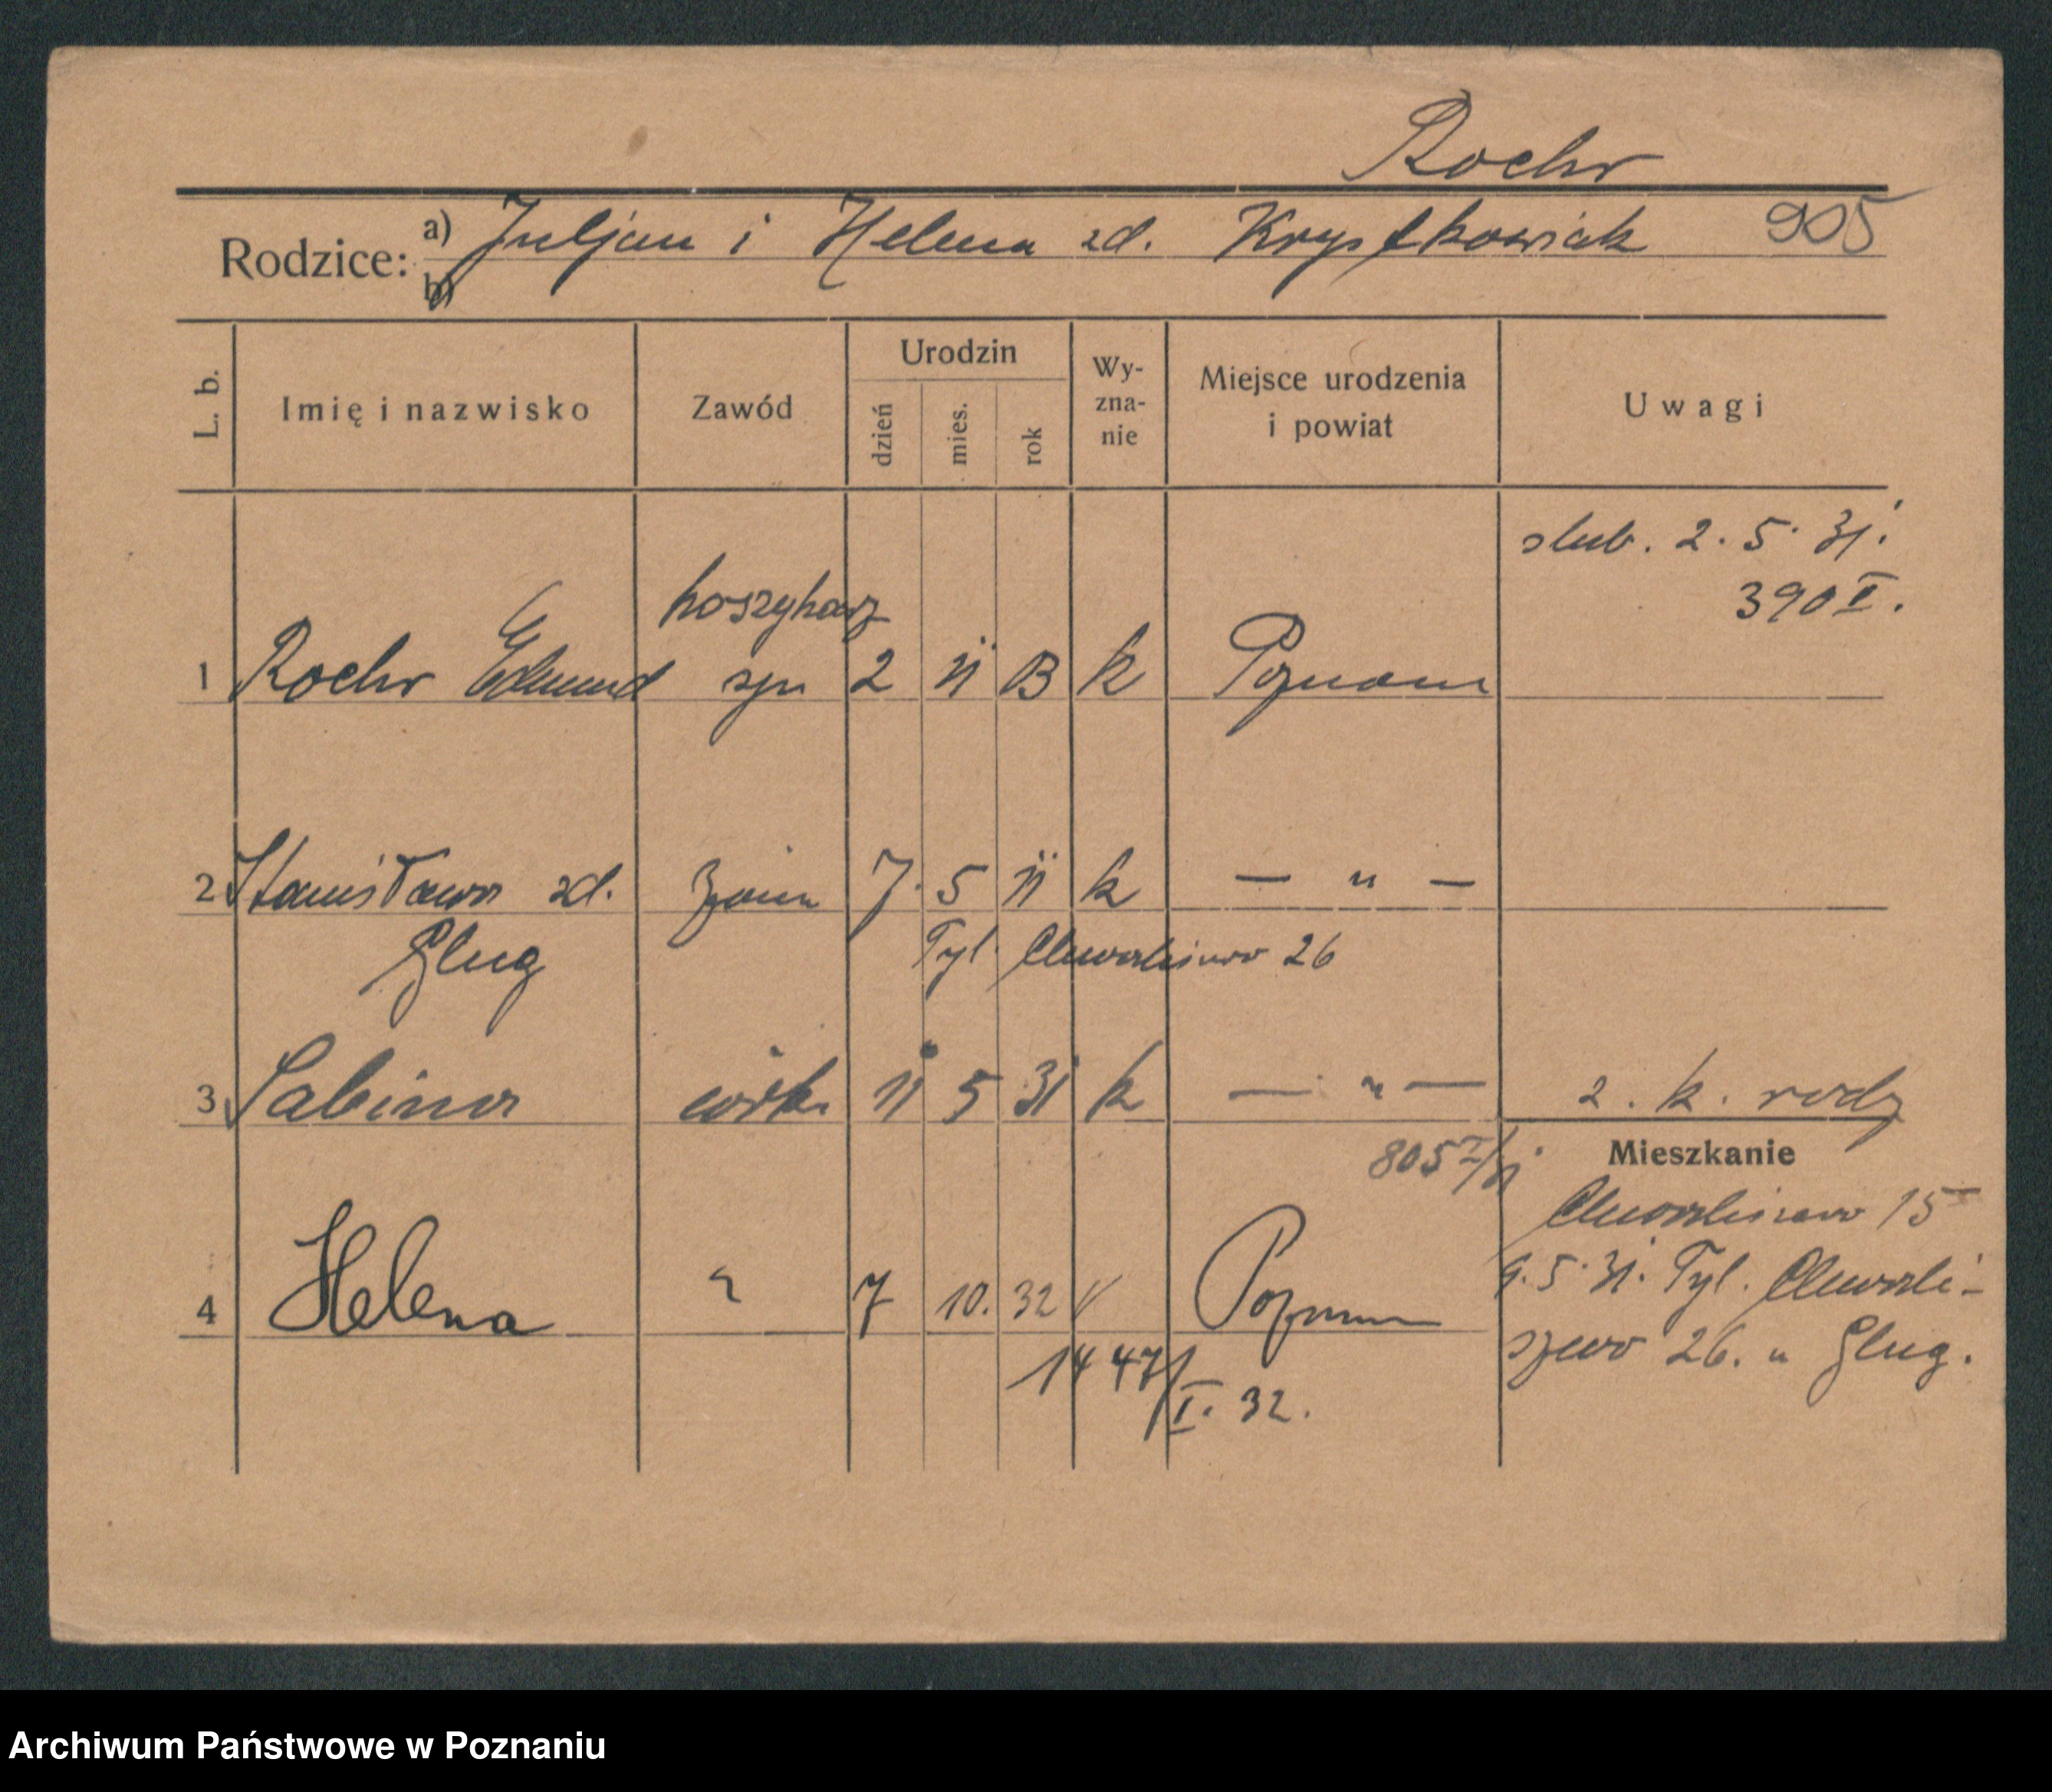 Roehr
Rodzice: a) Juljan i Helena zd. Krysztkowiak 905
b)
L. b. Imię i nazwisko Zawód Urodzin dzień mies. rok Wy-zna-nie Miejsce urodzenia i powiat Uwagi
slub. 2. 5. 31.
390 I.
koszykarz
1 Roehr Edmund syn 2 11 03 k Poznan
2 Stanisława zd. żona 7. 5 11 k — " —
Glug Tyl. 26
3 Sabina córka 11 5 31 k — " — 2. k. rodz
805 I/31 Mieszkanie
15
4 Helena " 7 10. 32 k Poznan 9. 5. 31. Tyl.
szewo 26. u Glug.
1447/
I. 32.
Archiwum Państwowe w Poznaniu